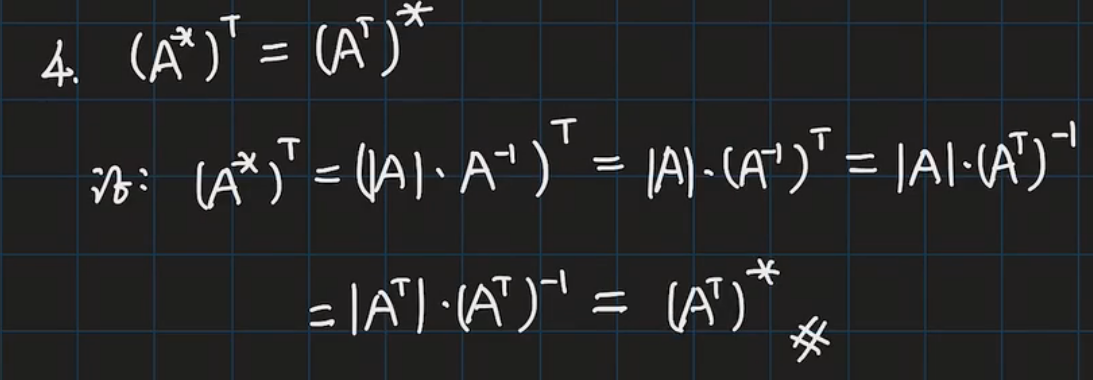 4. (A*)ᵀ = (Aᵀ)*
证: (A*)ᵀ = (|A|·A⁻¹)ᵀ = |A|·(A⁻¹)ᵀ = |A|·(Aᵀ)⁻¹
= |Aᵀ|·(Aᵀ)⁻¹ = (Aᵀ)* #